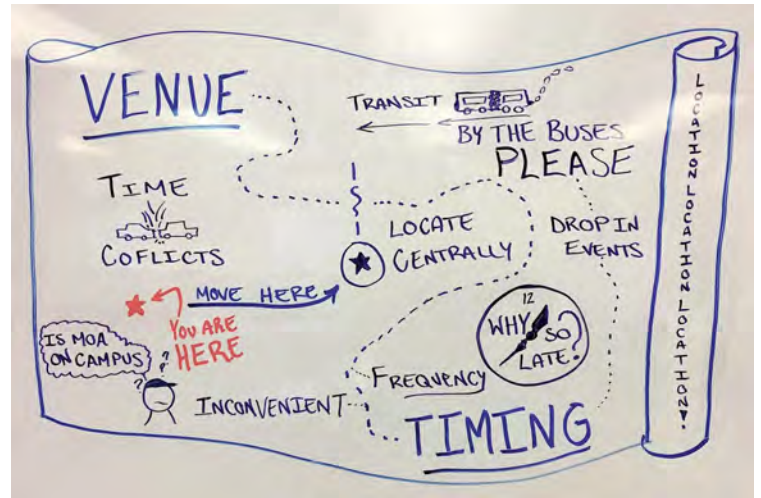 VENUE
TRANSIT
BY THE BUSES
PLEASE
TIME
COFLICTS
LOCATE
CENTRALLY
DROP IN
EVENTS
MOVE HERE
YOU ARE
HERE
IS MOA
ON CAMPUS
???
INCONVENIENT
FREQUENCY
12
WHY SO
LATE?
TIMING
LOCATION LOCATION LOCATION!